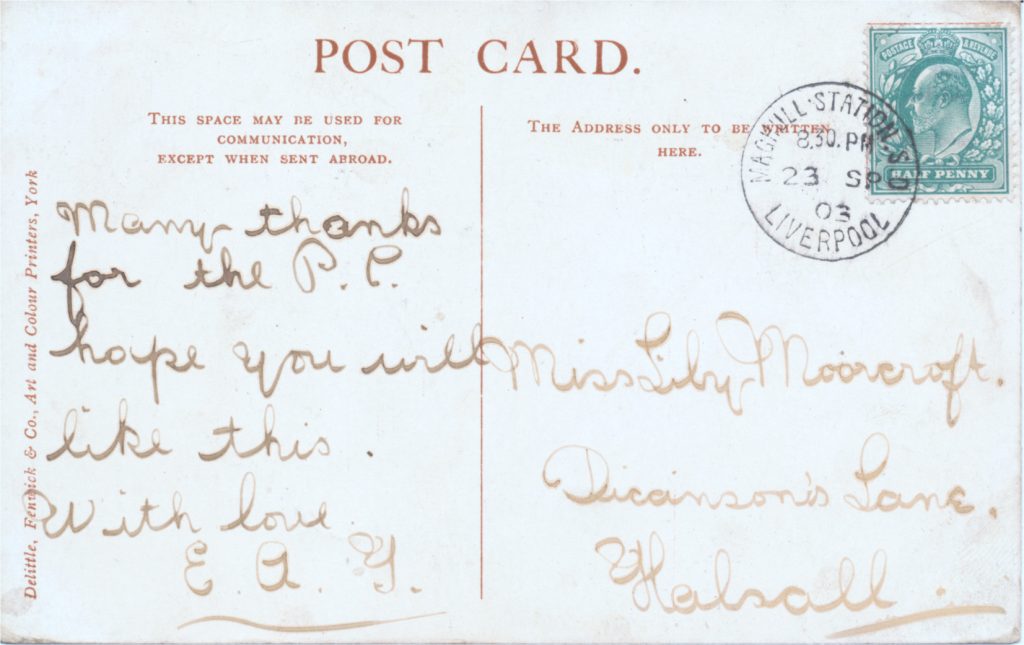 POST CARD.
THIS SPACE MAY BE USED FOR
COMMUNICATION,
EXCEPT WHEN SENT ABROAD.
THE ADDRESS ONLY TO BE WRITTEN
HERE.
POSTAGE & REVENUE
HALF PENNY
MAGHULL STATION S.O
8.30. PM
23 SP
03
LIVERPOOL
Delittle, Fenwick & Co., Art and Colour Printers, York
Many thanks
for the P.C.
hope you will
like this.
With love.
E. A. Y.
Miss Lily Moorcroft.
Dicanson's Lane.
Halsall.